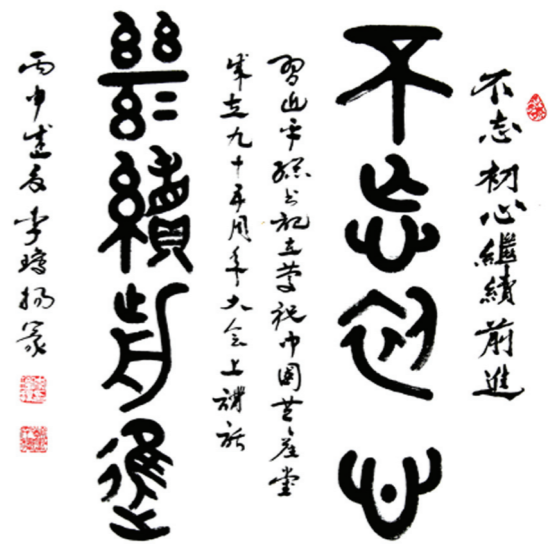 不忘初心繼續前進
不忘初心
習近平總书記在慶祝中國共產党
成立九十五周年大会上講話
繼續前進
丙申盛夏李揚篆